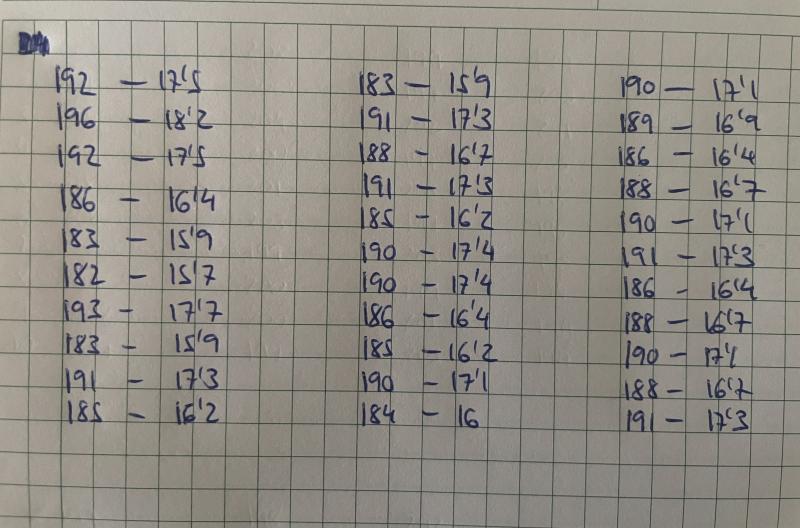 192 — 17'5
196 — 18'2
192 — 17'5
186 — 16'4
183 — 15'9
182 — 15'7
193 — 17'7
183 — 15'9
191 — 17'3
185 — 16'2
183 — 15'9
191 — 17'3
188 — 16'7
191 — 17'3
185 — 16'2
190 — 17'4
190 — 17'4
186 — 16'4
185 — 16'2
190 — 17'1
184 — 16
190 — 17'1
189 — 16'9
186 — 16'4
188 — 16'7
190 — 17'1
191 — 17'3
186 — 16'4
188 — 16'7
190 — 17'1
188 — 16'7
191 — 17'3